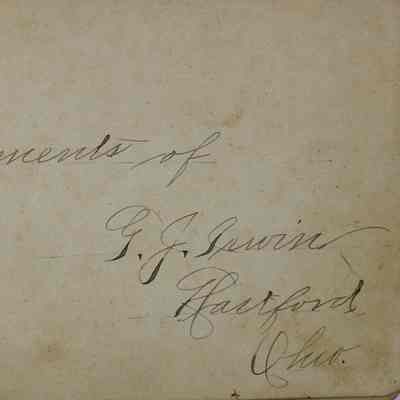 ments of
G. J. Irwin
Hartford
Ohio.